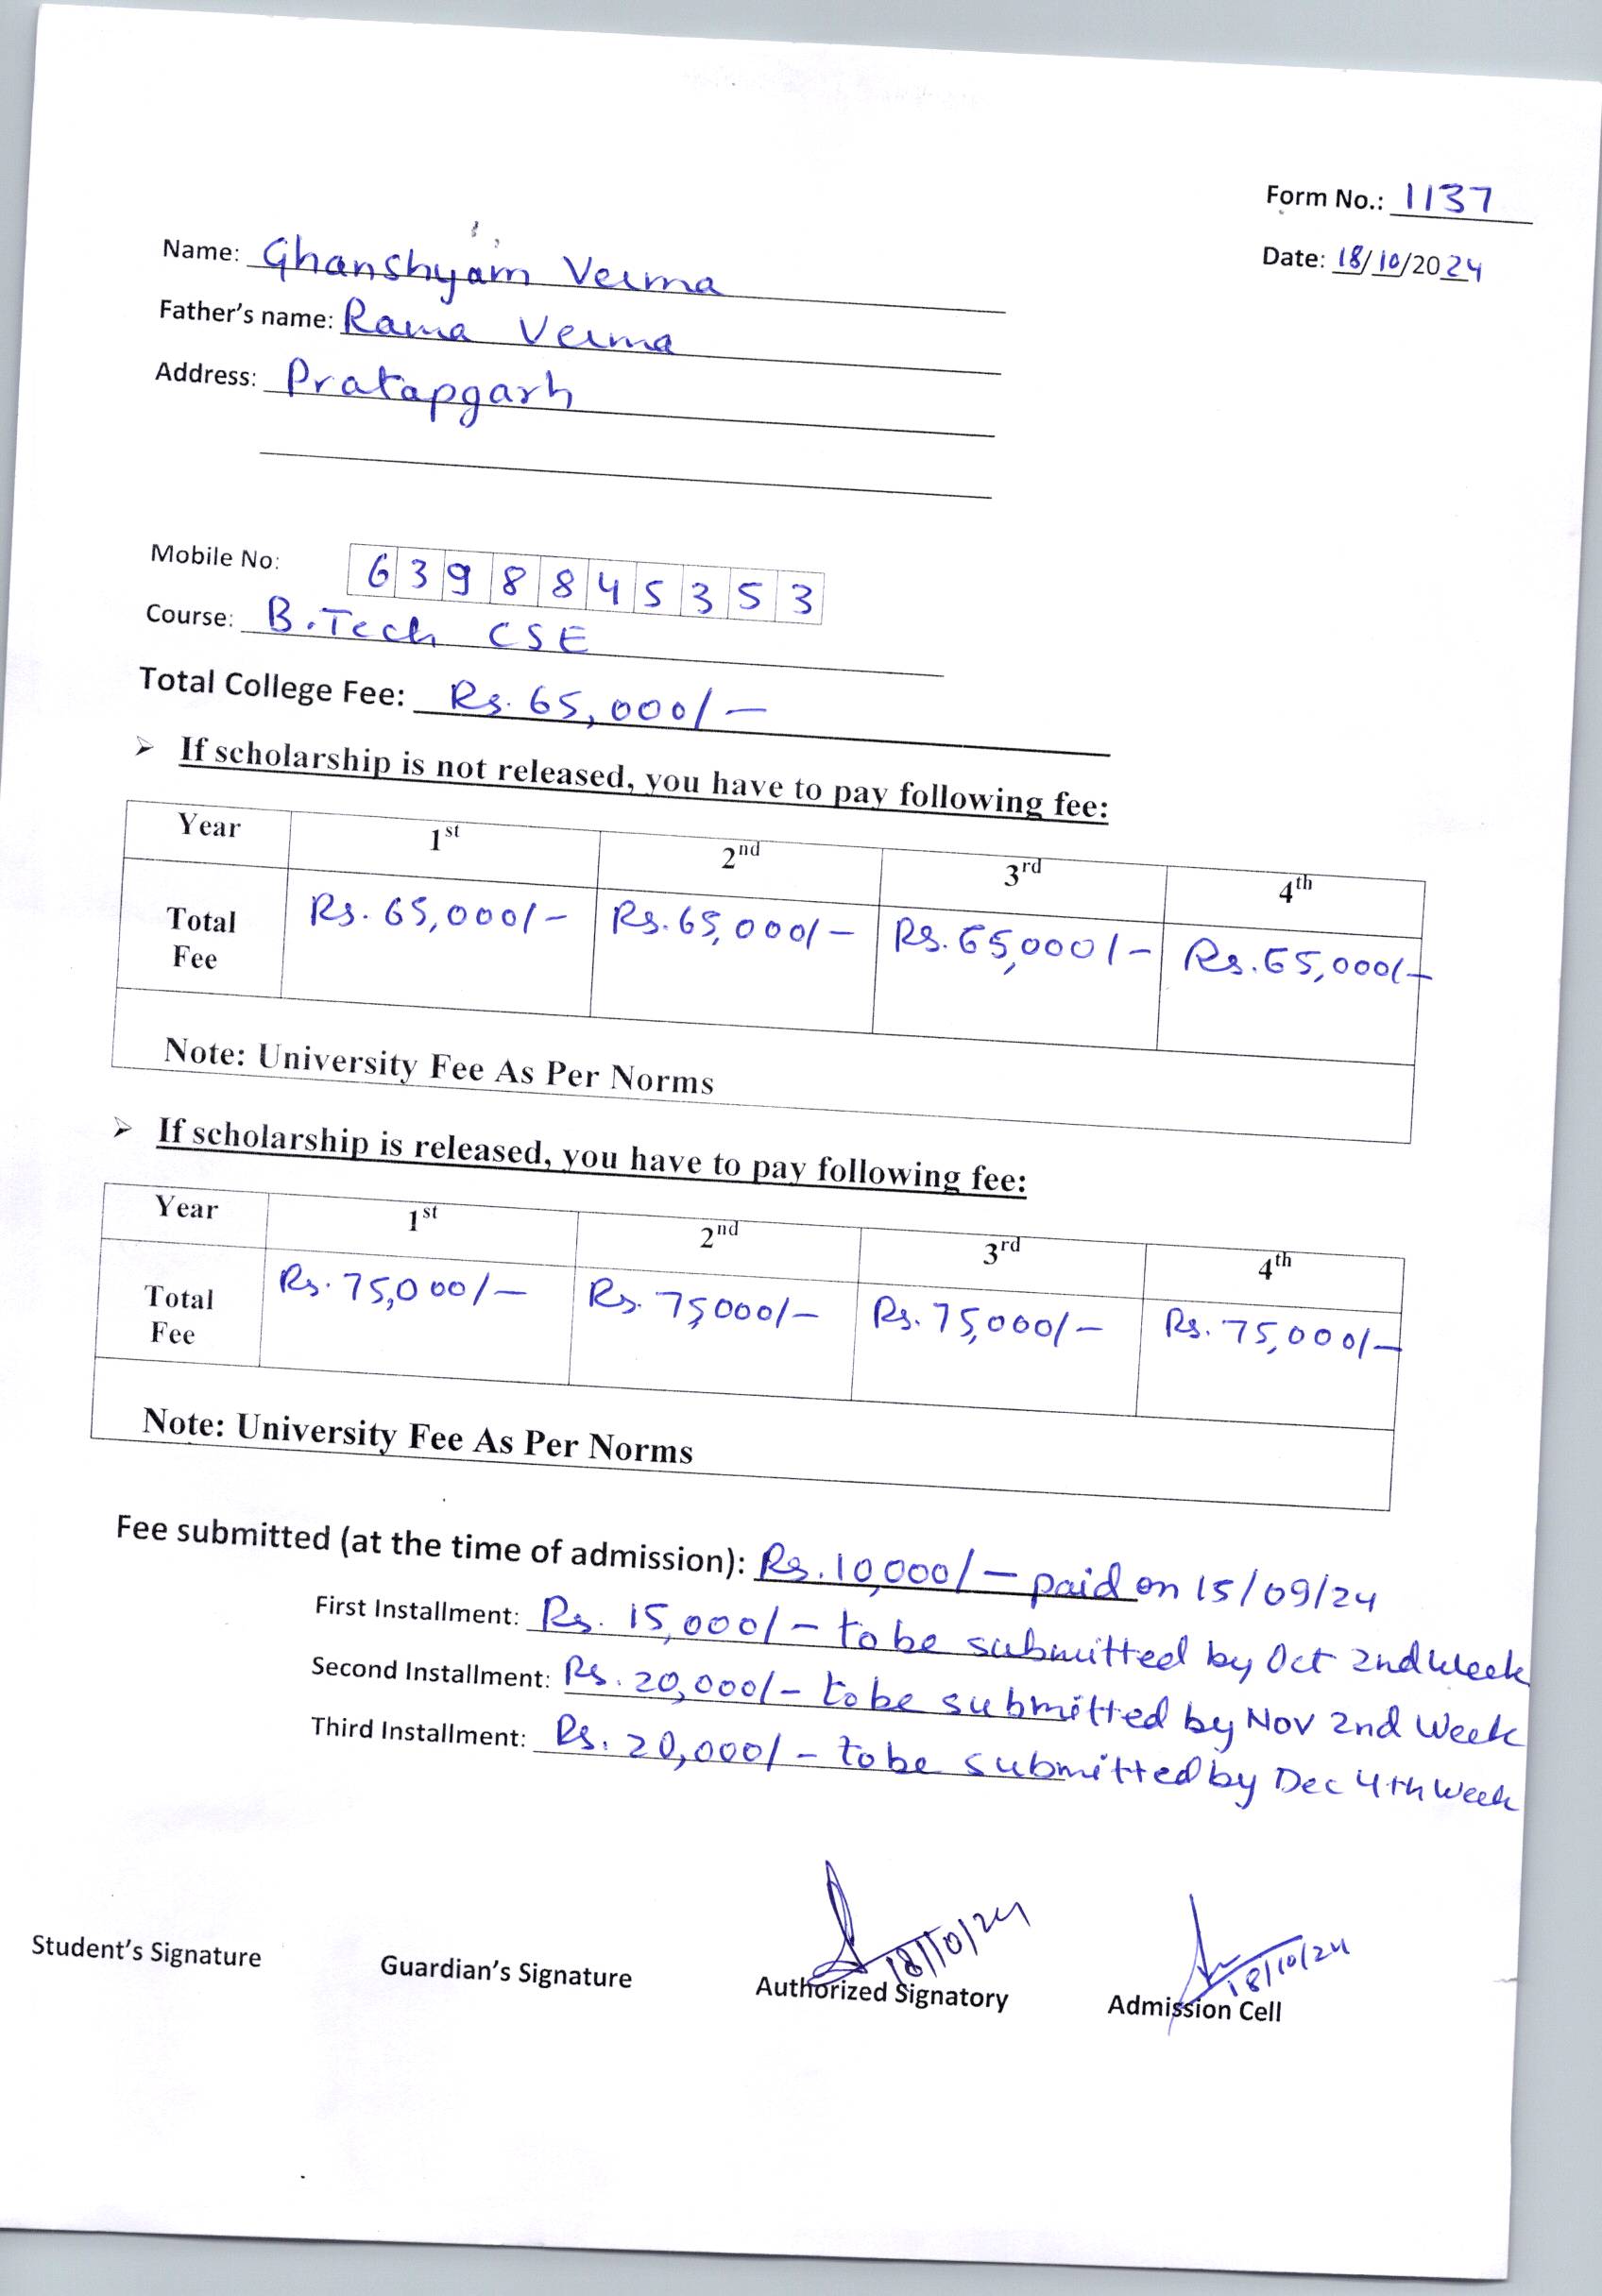 Form No.: 1137
Date: 18/10/2024
Name: Ghanshyam Verma
Father's name: Rama Verma
Address: Pratapgarh
Mobile No: 6398845353
Course: B.Tech CSE
Total College Fee: Rs. 65,000/-
➢ If scholarship is not released, you have to pay following fee:
Year 1st 2nd 3rd 4th
Total Fee Rs. 65,000/- Rs. 65,000/- Rs. 65,000/- Rs. 65,000/-
Note: University Fee As Per Norms
➢ If scholarship is released, you have to pay following fee:
Year 1st 2nd 3rd 4th
Total Fee Rs. 75,000/- Rs. 75,000/- Rs. 75,000/- Rs. 75,000/-
Note: University Fee As Per Norms
Fee submitted (at the time of admission): Rs. 10,000/- paid on 15/09/24
First Installment: Rs. 15,000/- to be submitted by Oct 2nd Week
Second Installment: Rs. 20,000/- to be submitted by Nov 2nd Week
Third Installment: Rs. 20,000/- to be submitted by Dec 4th Week
18/10/24 18/10/24
Student's Signature Guardian's Signature Authorized Signatory Admission Cell